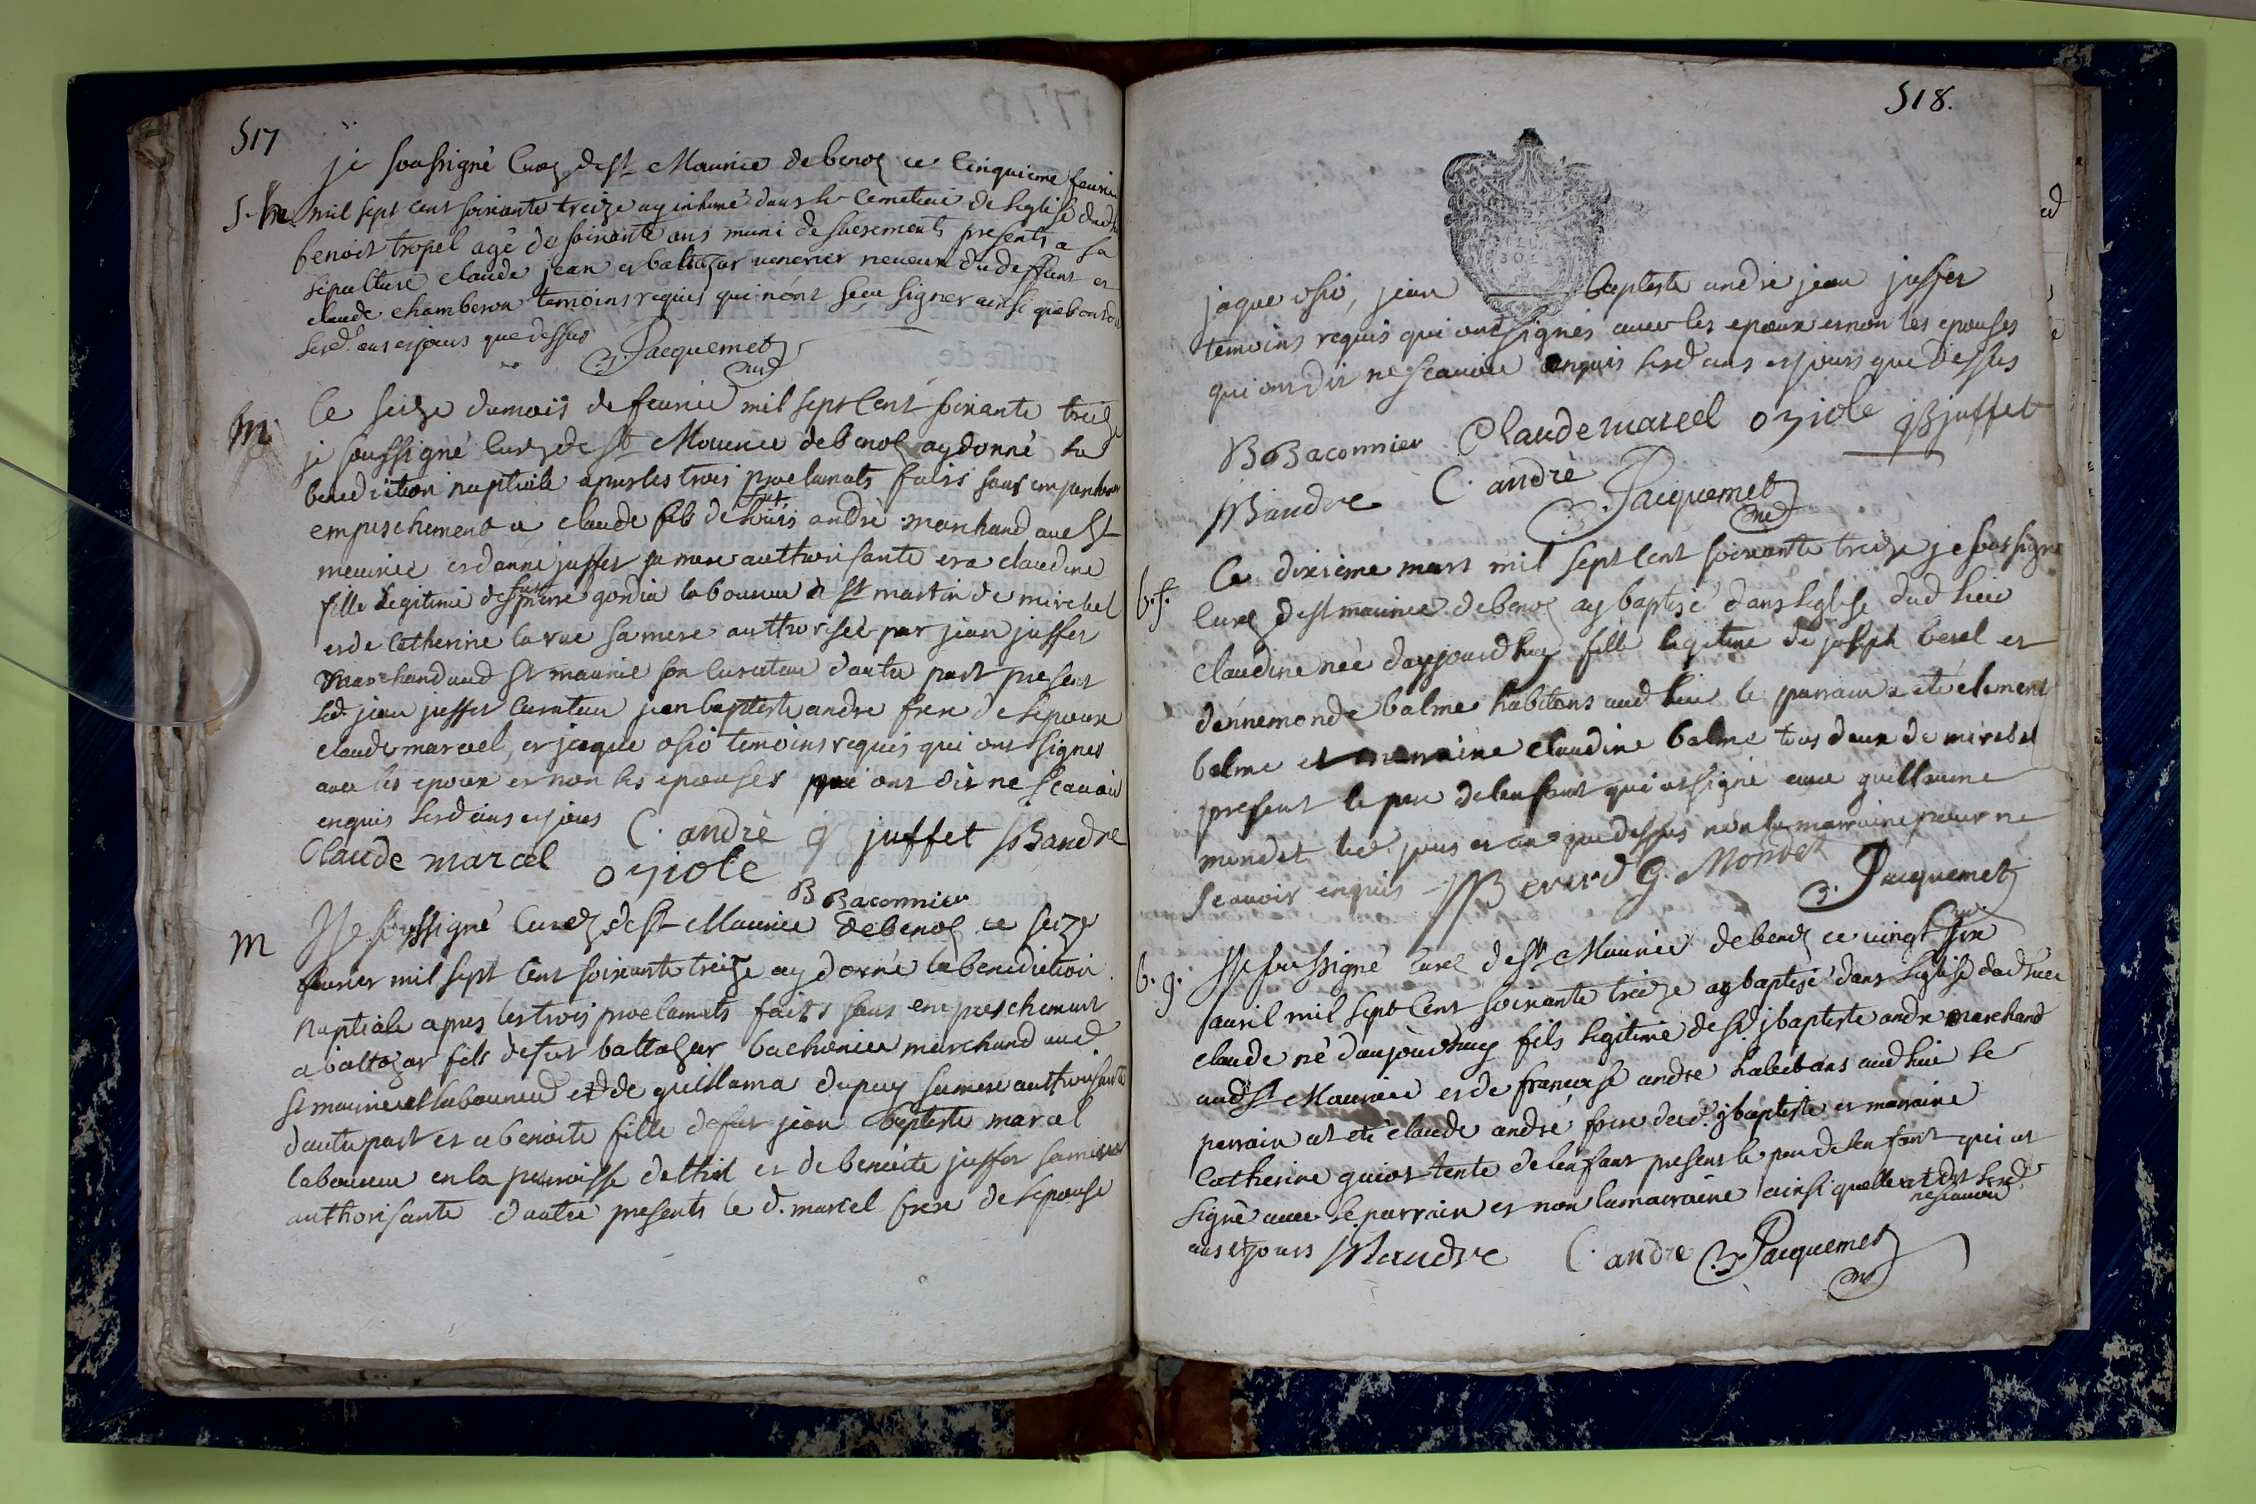 517
je soussigné Curé de st Maurice de benot ce Cinquieme fevrier
S. h. mil sept cent soixante treize ay inhumé dans le Cemetiere de leglise dud
benoit tropel agé de soixante ans muni de sacrements presents a sa
sepulture claude jean et baltazar neveux du deffunt et
claude Chamberon temoins requis qui nont sceu signer ainsi
led. ans et jours que dessus Jacquemet
m Ce seize du mois de fevrier mil sept Cent soixante treize
je soussigné Curé de St Maurice de benot ay donné la
benediction nuptiale apres les trois proclamats faits sans
empeschement a claude fils de fut andré marchand aud St
maurice et danne juffet sa mere authorisante et a claudine
fille legitime de fut pierre gondia laboureur a St martin de mirebel
et de Catherine larue sa mere authorisée par jean juffet
marchand aud St maurice son Curateur dautre part present
led. jean juffet Curateur jean baptiste andre frere de lepoux
claude marcel, et jaque osio temoins requis qui ont signes
avec les epoux et non les epouses qui ont dit ne scavoir
enquis led ans et jours C. andrè j juffet JBandre
Claude marcel oziole
B Baconnier
m Je soussigné Curé de St Maurice de benot ce seize
fevrier mil sept Cent soixante treize ay donné la benediction
nuptiale apres les trois proclamats faits sans empeschement
a baltazar fils de fut baltazar bachonier marchand aud
St maurice et laboureur et de guillama dupuy sa mere authorisante
dautre part et a benoite fille de fut jean baptiste marcel
laboureur en la parroisse de thil et de benoite juffet sa mere
authorisante dautre presents le d. marcel frere de lepouse
518.
jaque osio, jean baptiste andre jean juffet
temoins requis qui ont signés avec les epoux et non les epouses
qui ont dit ne scavoir enquis led ans et jours que dessus
B Baconnier Claude marcel oziole jB juffet
JBandre C. andrè Jacquemet
b. f. Ce dixieme mars mil sept Cent soixante treize je soussigné
Curé de st maurice de benot ay baptisé dans leglise dud lieu
Claudine née daujourdhuy fille legitime de joseph berel et
dennemonde balme habitans aud lieu le parrain a eté clement
balme et marraine claudine balme tous deux de mirebel
present le pere de lenfant qui at signé avec guillaume
mondet led. jours et an que dessus non la marraine pour ne
scavoir enquis G. Mondet Jacquemet
b. g. Je soussigné Curé de St Maurice de benot ce vingt six
avril mil sept Cent soixante treize ay baptisé dans leglise dud lieu
claude né daujourdhuy fils legitime de Sr jbaptiste andre marchand
aud St Maurice et de françoise andre habitans aud lieu le
parrain at eté claude andré frere dud. jbaptiste et marraine
Catherine guiot tente de lenfant present le pere de lenfant qui at
signé avec le parrain et non la marraine ainsi quelle at dit ne scavoir led
ans et jours JBandre C. andre Jacquemet